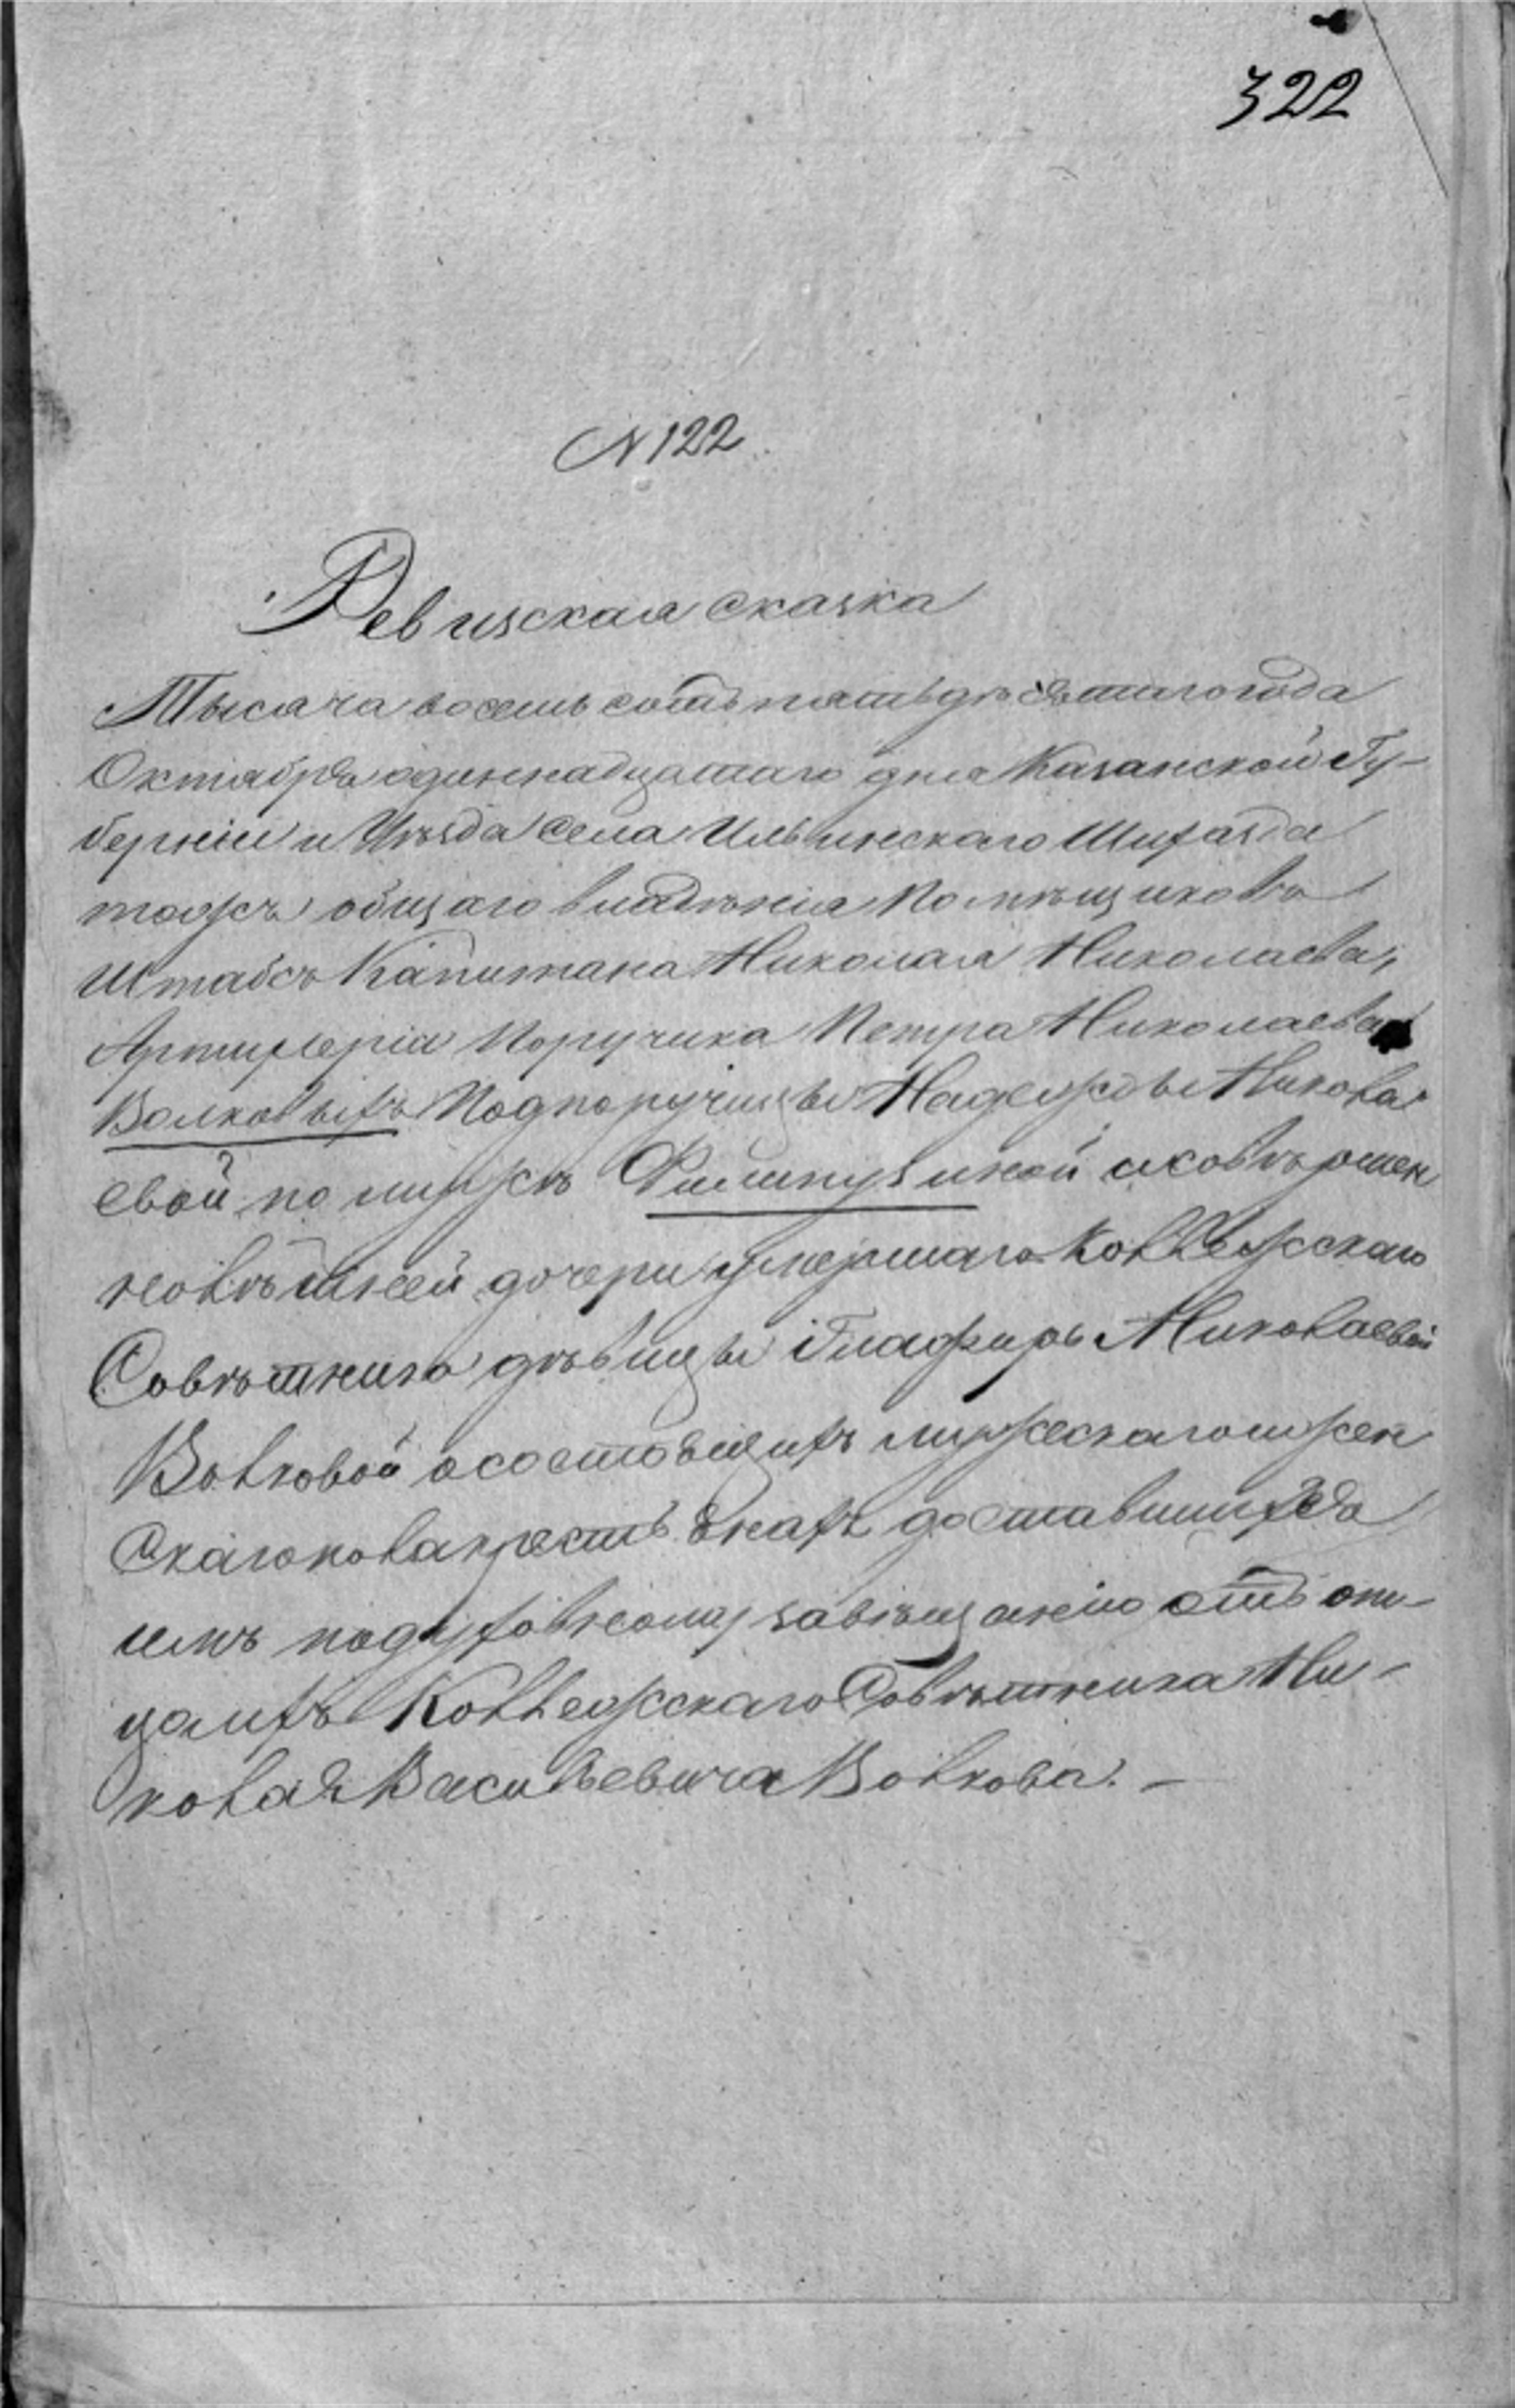 322
N 122
Ревизская сказка
Тысяча восемь сотъ пятьдѣсятаго года
Октября одиннадцатаго дня Казанской Гу-
берніи и Уѣзда села Ильинскаго Шигазда
тожъ общаго владѣнія Помѣщиковъ
Штабсъ Капитана Николая Николаева,
Артилеріи Поручика Петра Николаева
Волковыхъ Подпоручицы Надежды Никола
евой по мужѣ Филипузиной исовѣршен
нолѣтней дочери умершаго Коллежскаго
Совѣтника дѣвицы Глафиры Николаевой
Волковой о состоящихъ мужескаго и жен
скаго пола крестьянахъ доставшихся
имъ по духовному завѣщанію отъ оти-
ца ихъ Коллежскаго Совѣтника Ни-
колая Васильевича Волкова. -